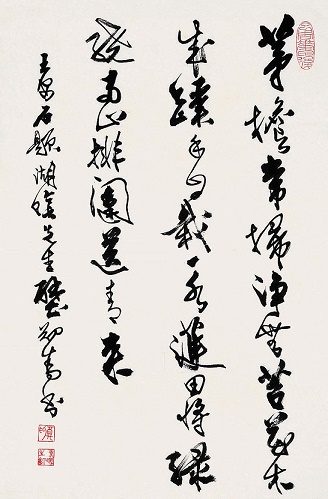 茅檐常掃淨無苔花木
成蹊手自栽一水護田將綠
繞兩山排闥送青來
王安石題湖陰先生壁 書